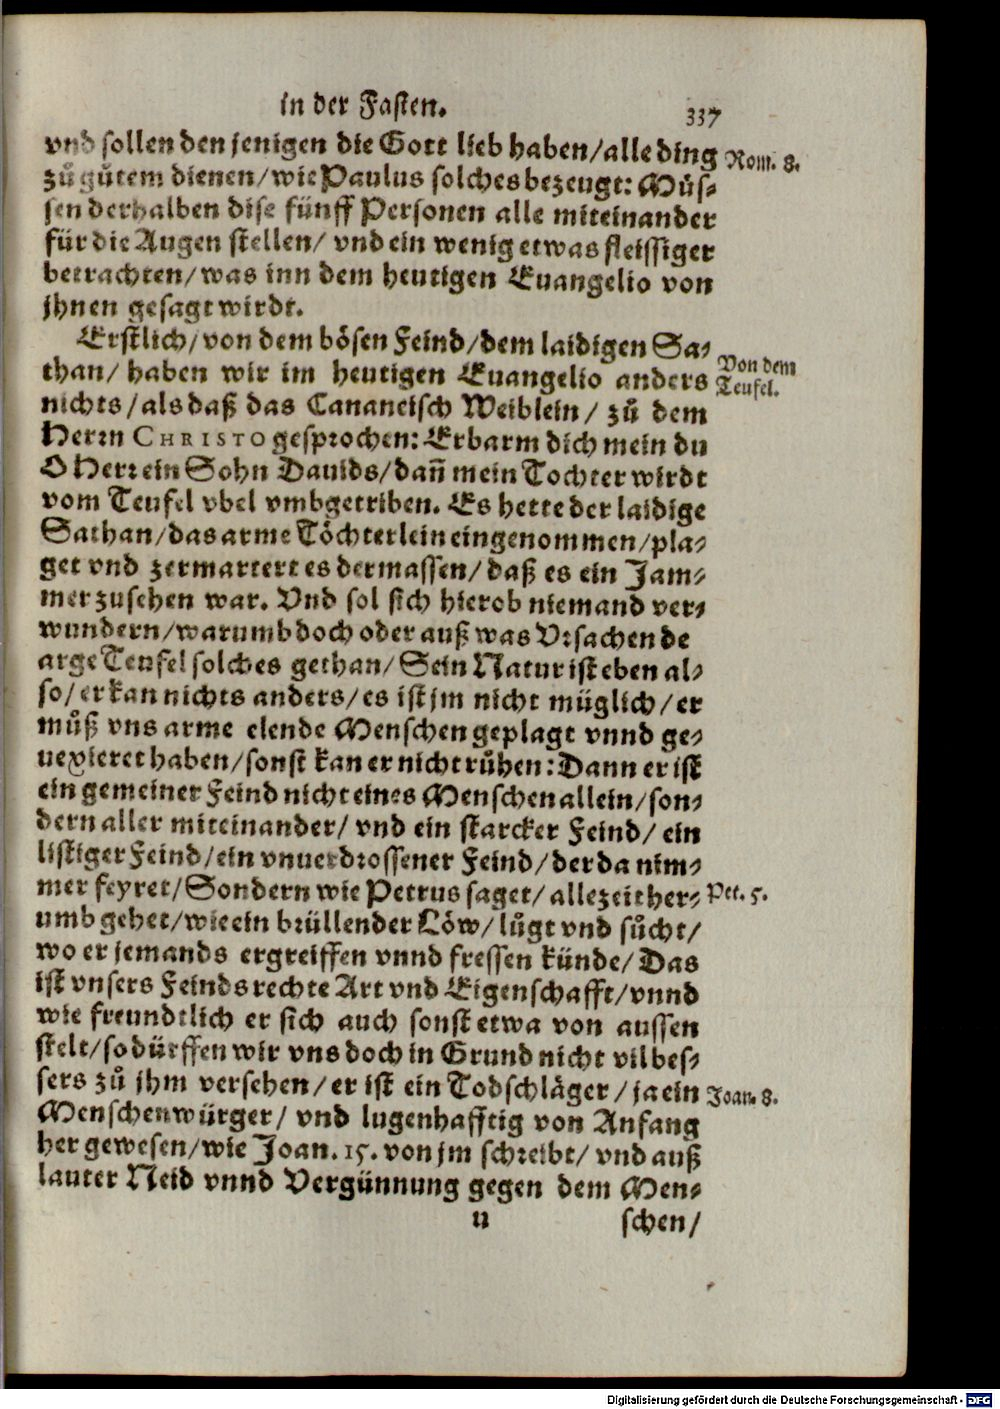 in der Fasten.
337
vnd sollen den jenigen die Gott lieb haben/alle ding
Rom. 8.
zů gůtem dienen/wie Paulus solches bezeugt: Müs-
sen derhalben dise fünff Personen alle miteinander
für die Augen stellen/ vnd ein wenig etwas fleissiger
betrachten/was inn dem heutigen Euangelio von
jhnen gesagt wirdt.
Erstlich/von dem bösen Feind/dem laidigen Sa-
Von dem
Teufel.
than/ haben wir im heutigen Euangelio anders
nichts/als daß das Cananeisch Weiblein/ zů dem
Herrn CHRISTO gesprochen: Erbarm dich mein du
O Herr ein Sohn Dauids/dañ mein Tochter wirdt
vom Teufel vbel vmbgetriben. Es hette der laidige
Sathan/das arme Töchterlein eingenommen/pla-
get vnd zermartert es dermassen/daß es ein Jam-
mer zusehen war. Vnd sol sich hierob niemand ver-
wundern/warumb doch oder auß was Vrsachen de
arge Teufel solches gethan/Sein Natur ist eben al-
so/er kan nichts anders/es ist jm nicht müglich/er
můß vns arme elende Menschen geplagt vnnd ge-
uexieret haben/sonst kan er nicht růhen: Dann er ist
ein gemeiner Feind nicht eines Menschen allein/son-
dern aller miteinander/ vnd ein starcker Feind/ ein
listiger Feind/ein vnuerdrossener Feind/der da nim-
mer feyret/Sondern wie Petrus saget/ allezeit her-
Pet. 5.
umb gehet/wie ein brüllender Löw/lůgt vnd sůcht/
wo er jemands ergreiffen vnnd fressen künde/Das
ist vnsers Feinds rechte Art vnd Eigenschafft/vnnd
wie freundtlich er sich auch sonst etwa von aussen
stelt/so dürffen wir vns doch in Grund nicht vil bes-
sers zů jhm versehen/er ist ein Todschläger/ja ein
Joan. 8.
Menschenwürger/ vnd lugenhafftig von Anfang
her gewesen/wie Joan. 15. von jm schreibt/ vnd auß
lauter Neid vnnd Vergünnung gegen dem Men-
u
schen/
Digitalisierung gefördert durch die Deutsche Forschungsgemeinschaft - DFG